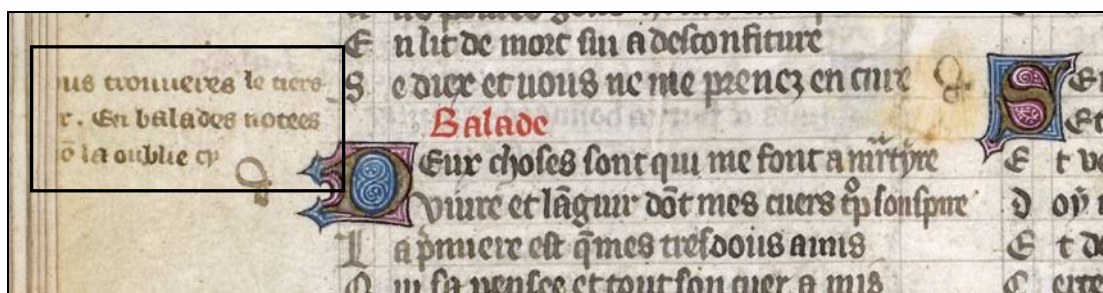 ous trouueres le tiers
r. En balades notees
õ la oublie cy
E n lit de mort sui a desconfiture
S e diex et uous ne me prenez en cure
Balade
Deux choses sont qui me font a mrtyre
Viure et lãguir dõt mes cuers souspire
L a pmiere est q̃ mes tresdous amis
Q ui sa pensee et tout son cuer a mis
S
Et
E t
D
E t
C